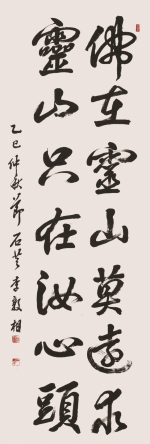 佛在靈山莫遠求
靈山只在汝心頭
乙巳仲秋節 石芸 李敦相